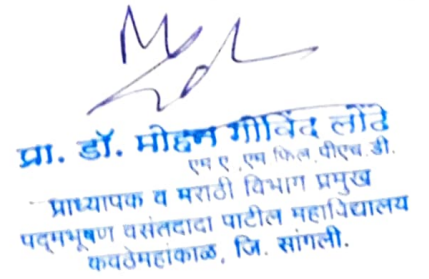 प्रा. डॉ. मोहन गोविंद लोंढे
एम ए, एम फिल, पीएच. डी.
प्राध्यापक व मराठी विभाग प्रमुख
पद्मभूषण वसंतदादा पाटील महाविद्यालय
कवठेमहांकाळ, जि. सांगली.